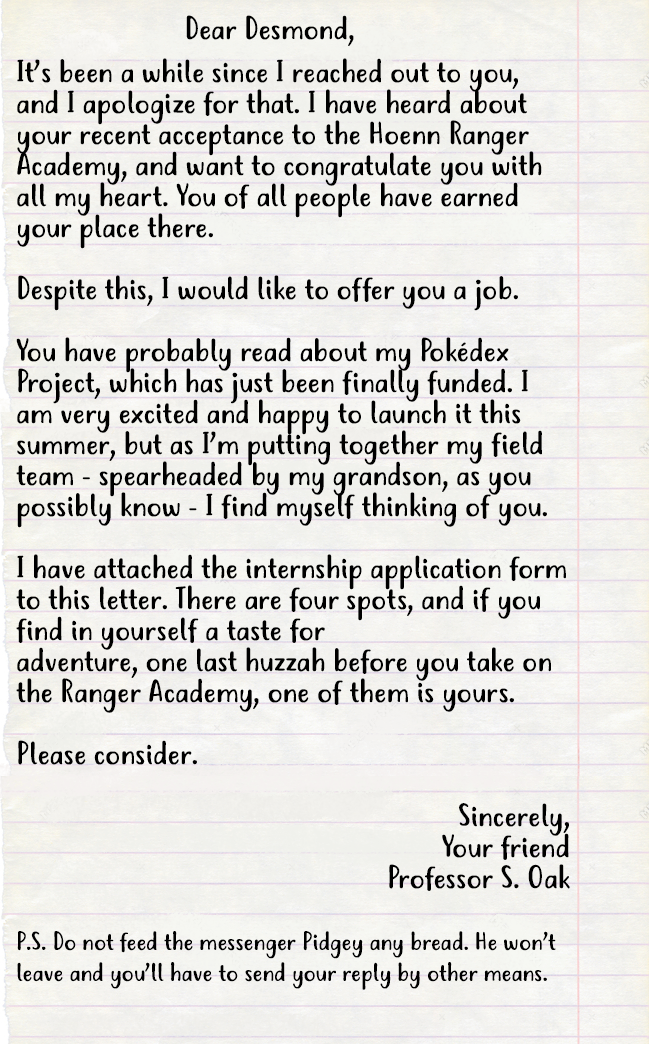 Dear Desmond,
It's been a while since I reached out to you,
and I apologize for that. I have heard about
your recent acceptance to the Hoenn Ranger
Academy, and want to congratulate you with
all my heart. You of all people have earned
your place there.
Despite this, I would like to offer you a job.
You have probably read about my Pokédex
Project, which has just been finally funded. I
am very excited and happy to launch it this
summer, but as I'm putting together my field
team - spearheaded by my grandson, as you
possibly know - I find myself thinking of you.
I have attached the internship application form
to this letter. There are four spots, and if you
find in yourself a taste for
adventure, one last huzzah before you take on
the Ranger Academy, one of them is yours.
Please consider.
Sincerely,
Your friend
Professor S. Oak
P.S. Do not feed the messenger Pidgey any bread. He won't
leave and you'll have to send your reply by other means.